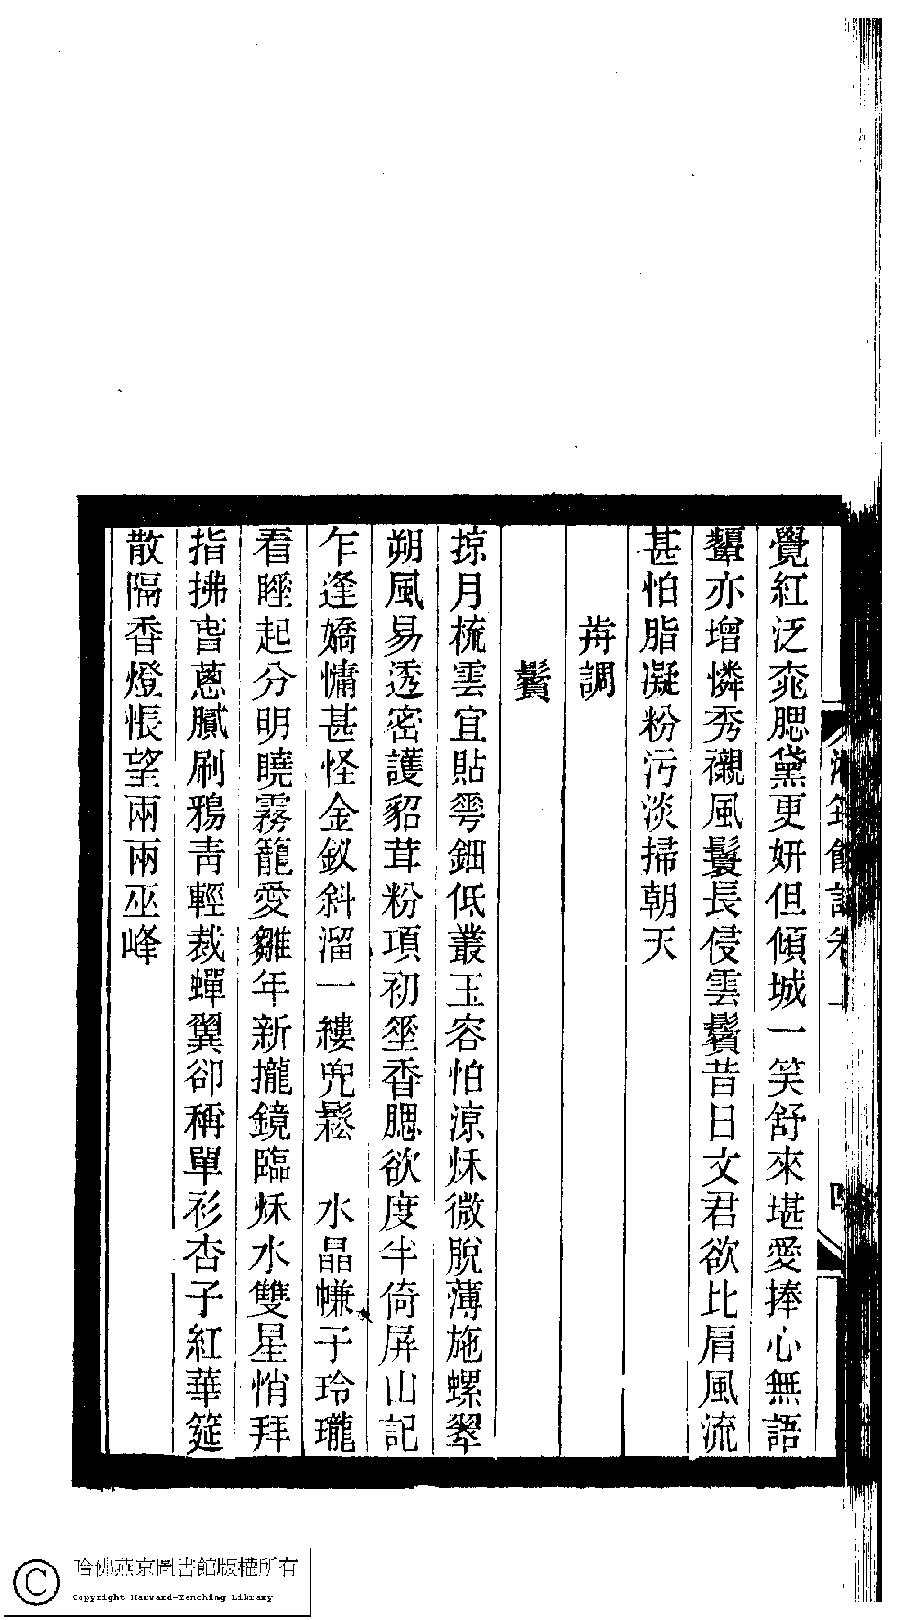 覺紅泛桃腮黛更妍但傾城一笑舒來堪愛捧心無語
顰亦增憐秀襯風鬟長侵雲鬢昔日文君欲比肩風流
甚怕脂凝粉污淡掃朝天
前調
鬢
掠月梳雲宜貼雩鈿低叢玉容怕涼秌微脫薄施螺翠
朔風易透密護貂茸粉項初垐香腮欲度半倚屏山記
乍逢嬌慵甚怪金釵斜溜一縷兜鬆　水晶㡘子玲瓏
看睡起分明曉霧籠愛雛年新攏鏡臨秌水雙星悄拜
指拂春蔥膩刷鴉青輕裁蟬翼卻稱單衫杏子紅華筵
散隔香燈悵望兩兩巫峰
哈佛燕京圖書館版權所有
Copyright Harvard-Yenching Library